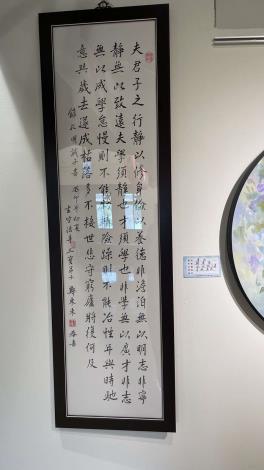 夫君子之行靜以修身儉以養德非澹泊無以明志非寧
靜無以致遠夫學須靜也才須學也非學無以廣才非志
無以成學怠慢則不能勵精險躁則不能冶性年與時馳
意與歲去遂成枯落多不接世悲守窮廬將復何及
錄孔明誡子書 癸卯年初夏